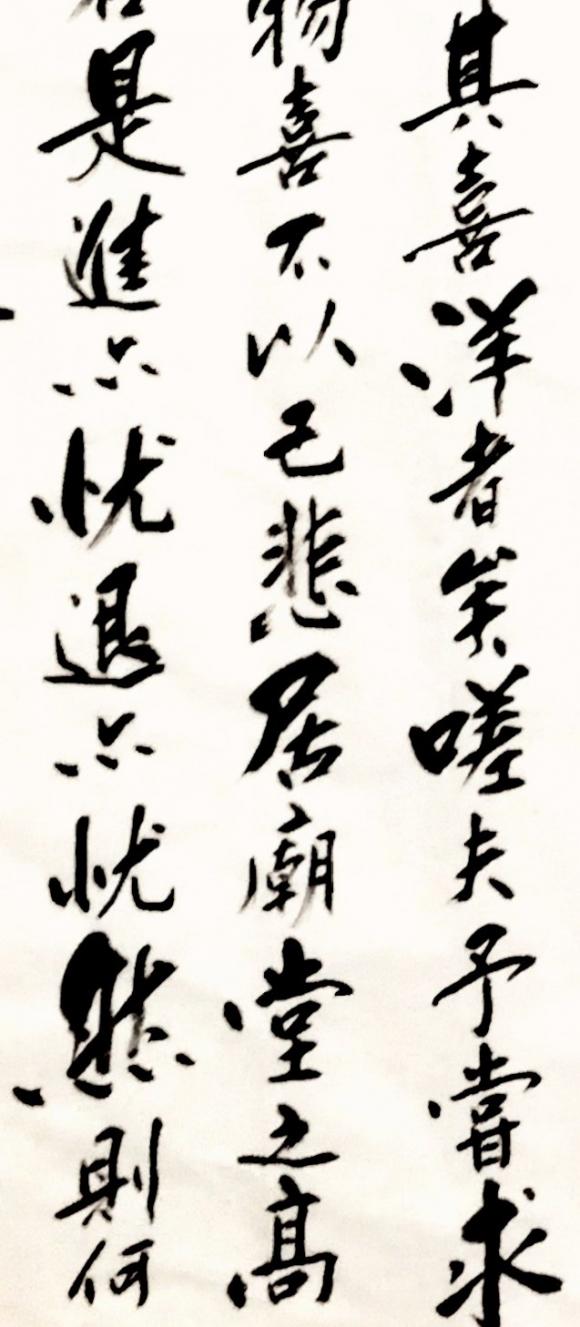 其喜洋者矣嗟夫予嘗求
物喜不以己悲居廟堂之高
是進亦忧退亦忧然則何